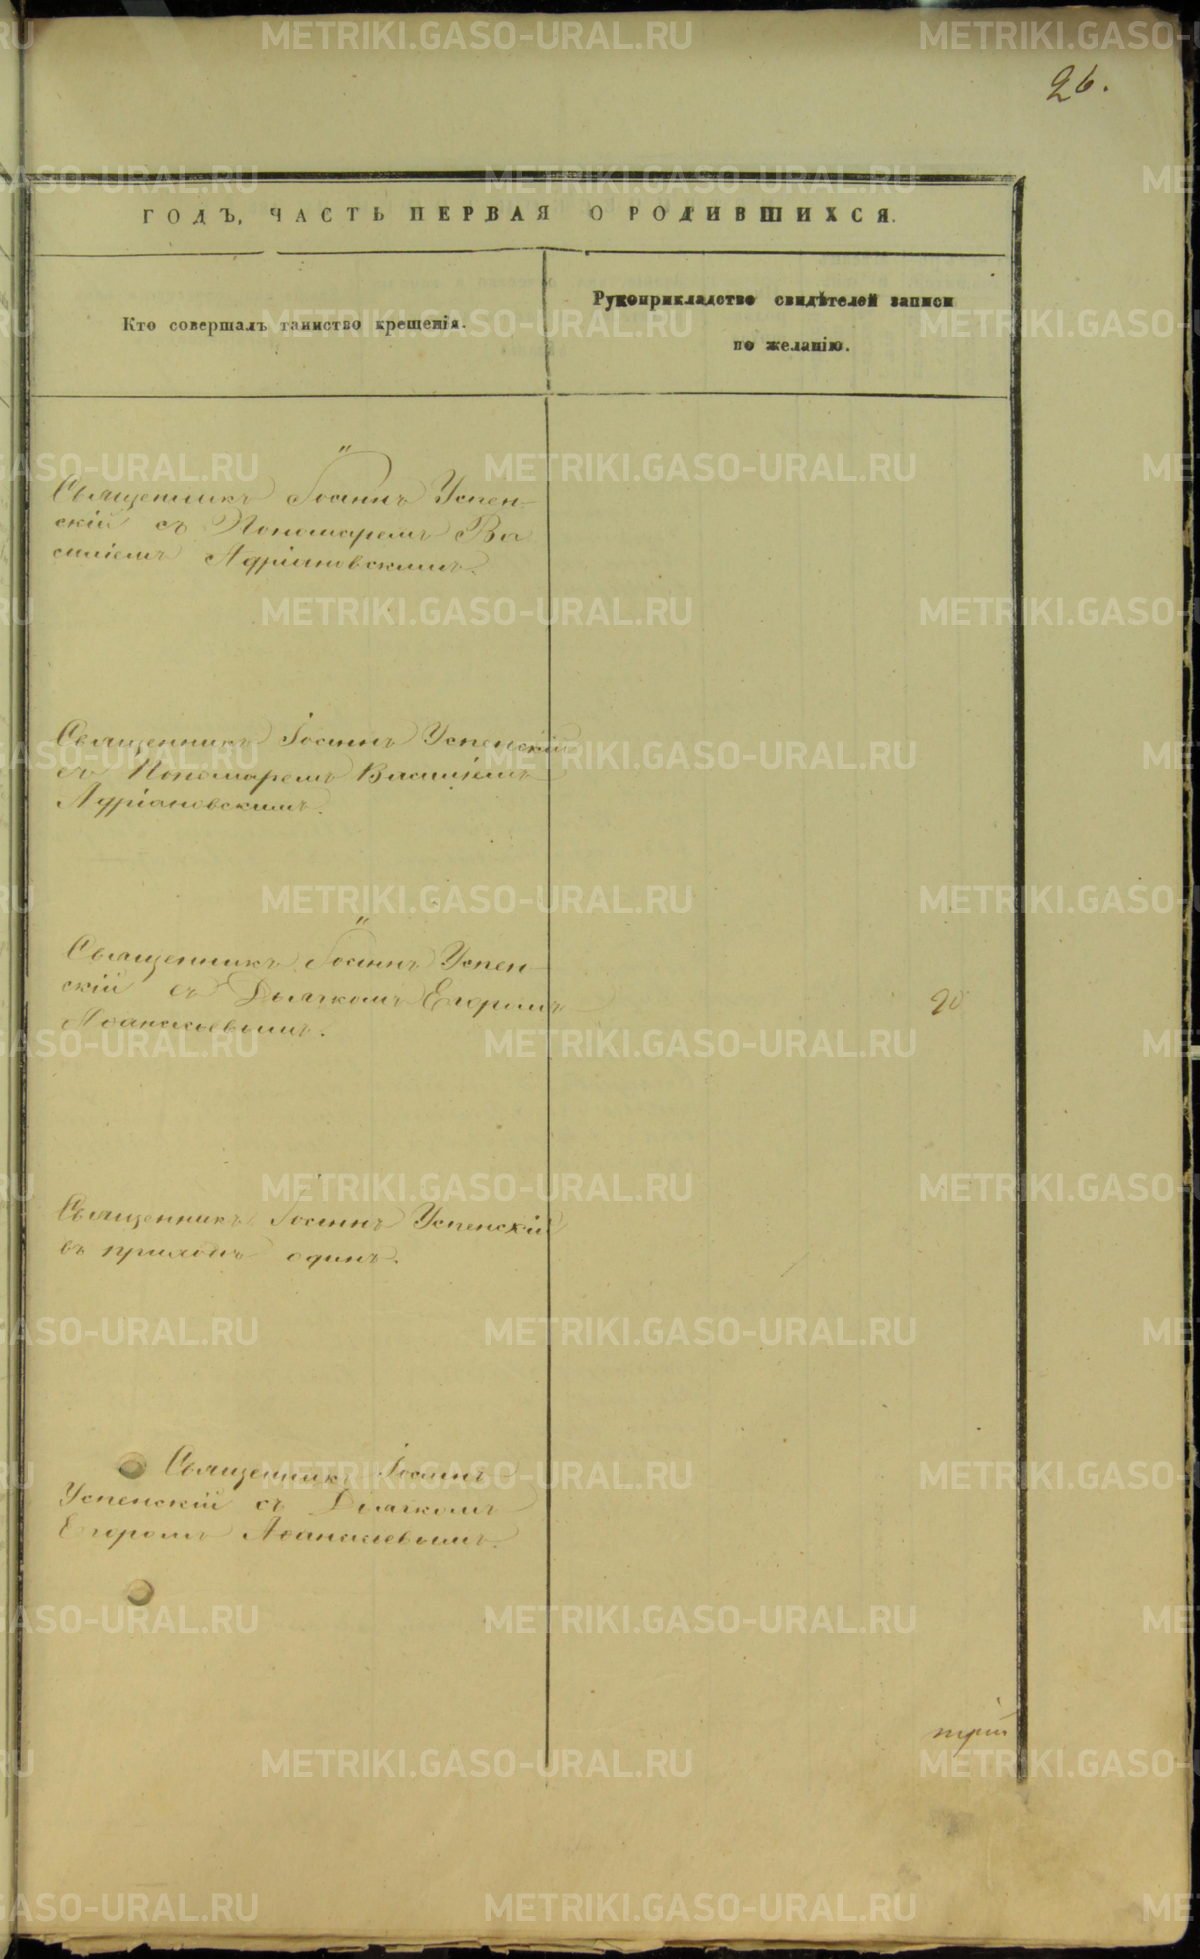 26.
ГОДЪ, ЧАСТЬ ПЕРВАЯ О РОДИВШИХСЯ.
Кто совершалъ таинство крещенія.
Рукоприкладство свидѣтелей записи
по желанію.
Священникъ Іоаннъ Успен-
скій съ Пономаремъ Ва
силіемъ Адріановскимъ.
Священникъ Іоаннъ Успенскій
съ Пономаремъ Василіемъ
Адріановскимъ.
Священникъ Іоаннъ Успен-
скій съ Дьячкомъ Егоромъ
Аѳанасьевымъ.
20
Священникъ Іоаннъ Успенскій
въ приходѣ одинъ.
Священникъ Іоаннъ
Успенскій съ Дьячкомъ
Егоромъ Аѳанасьевымъ.
METRIKI.GASO-URAL.RU